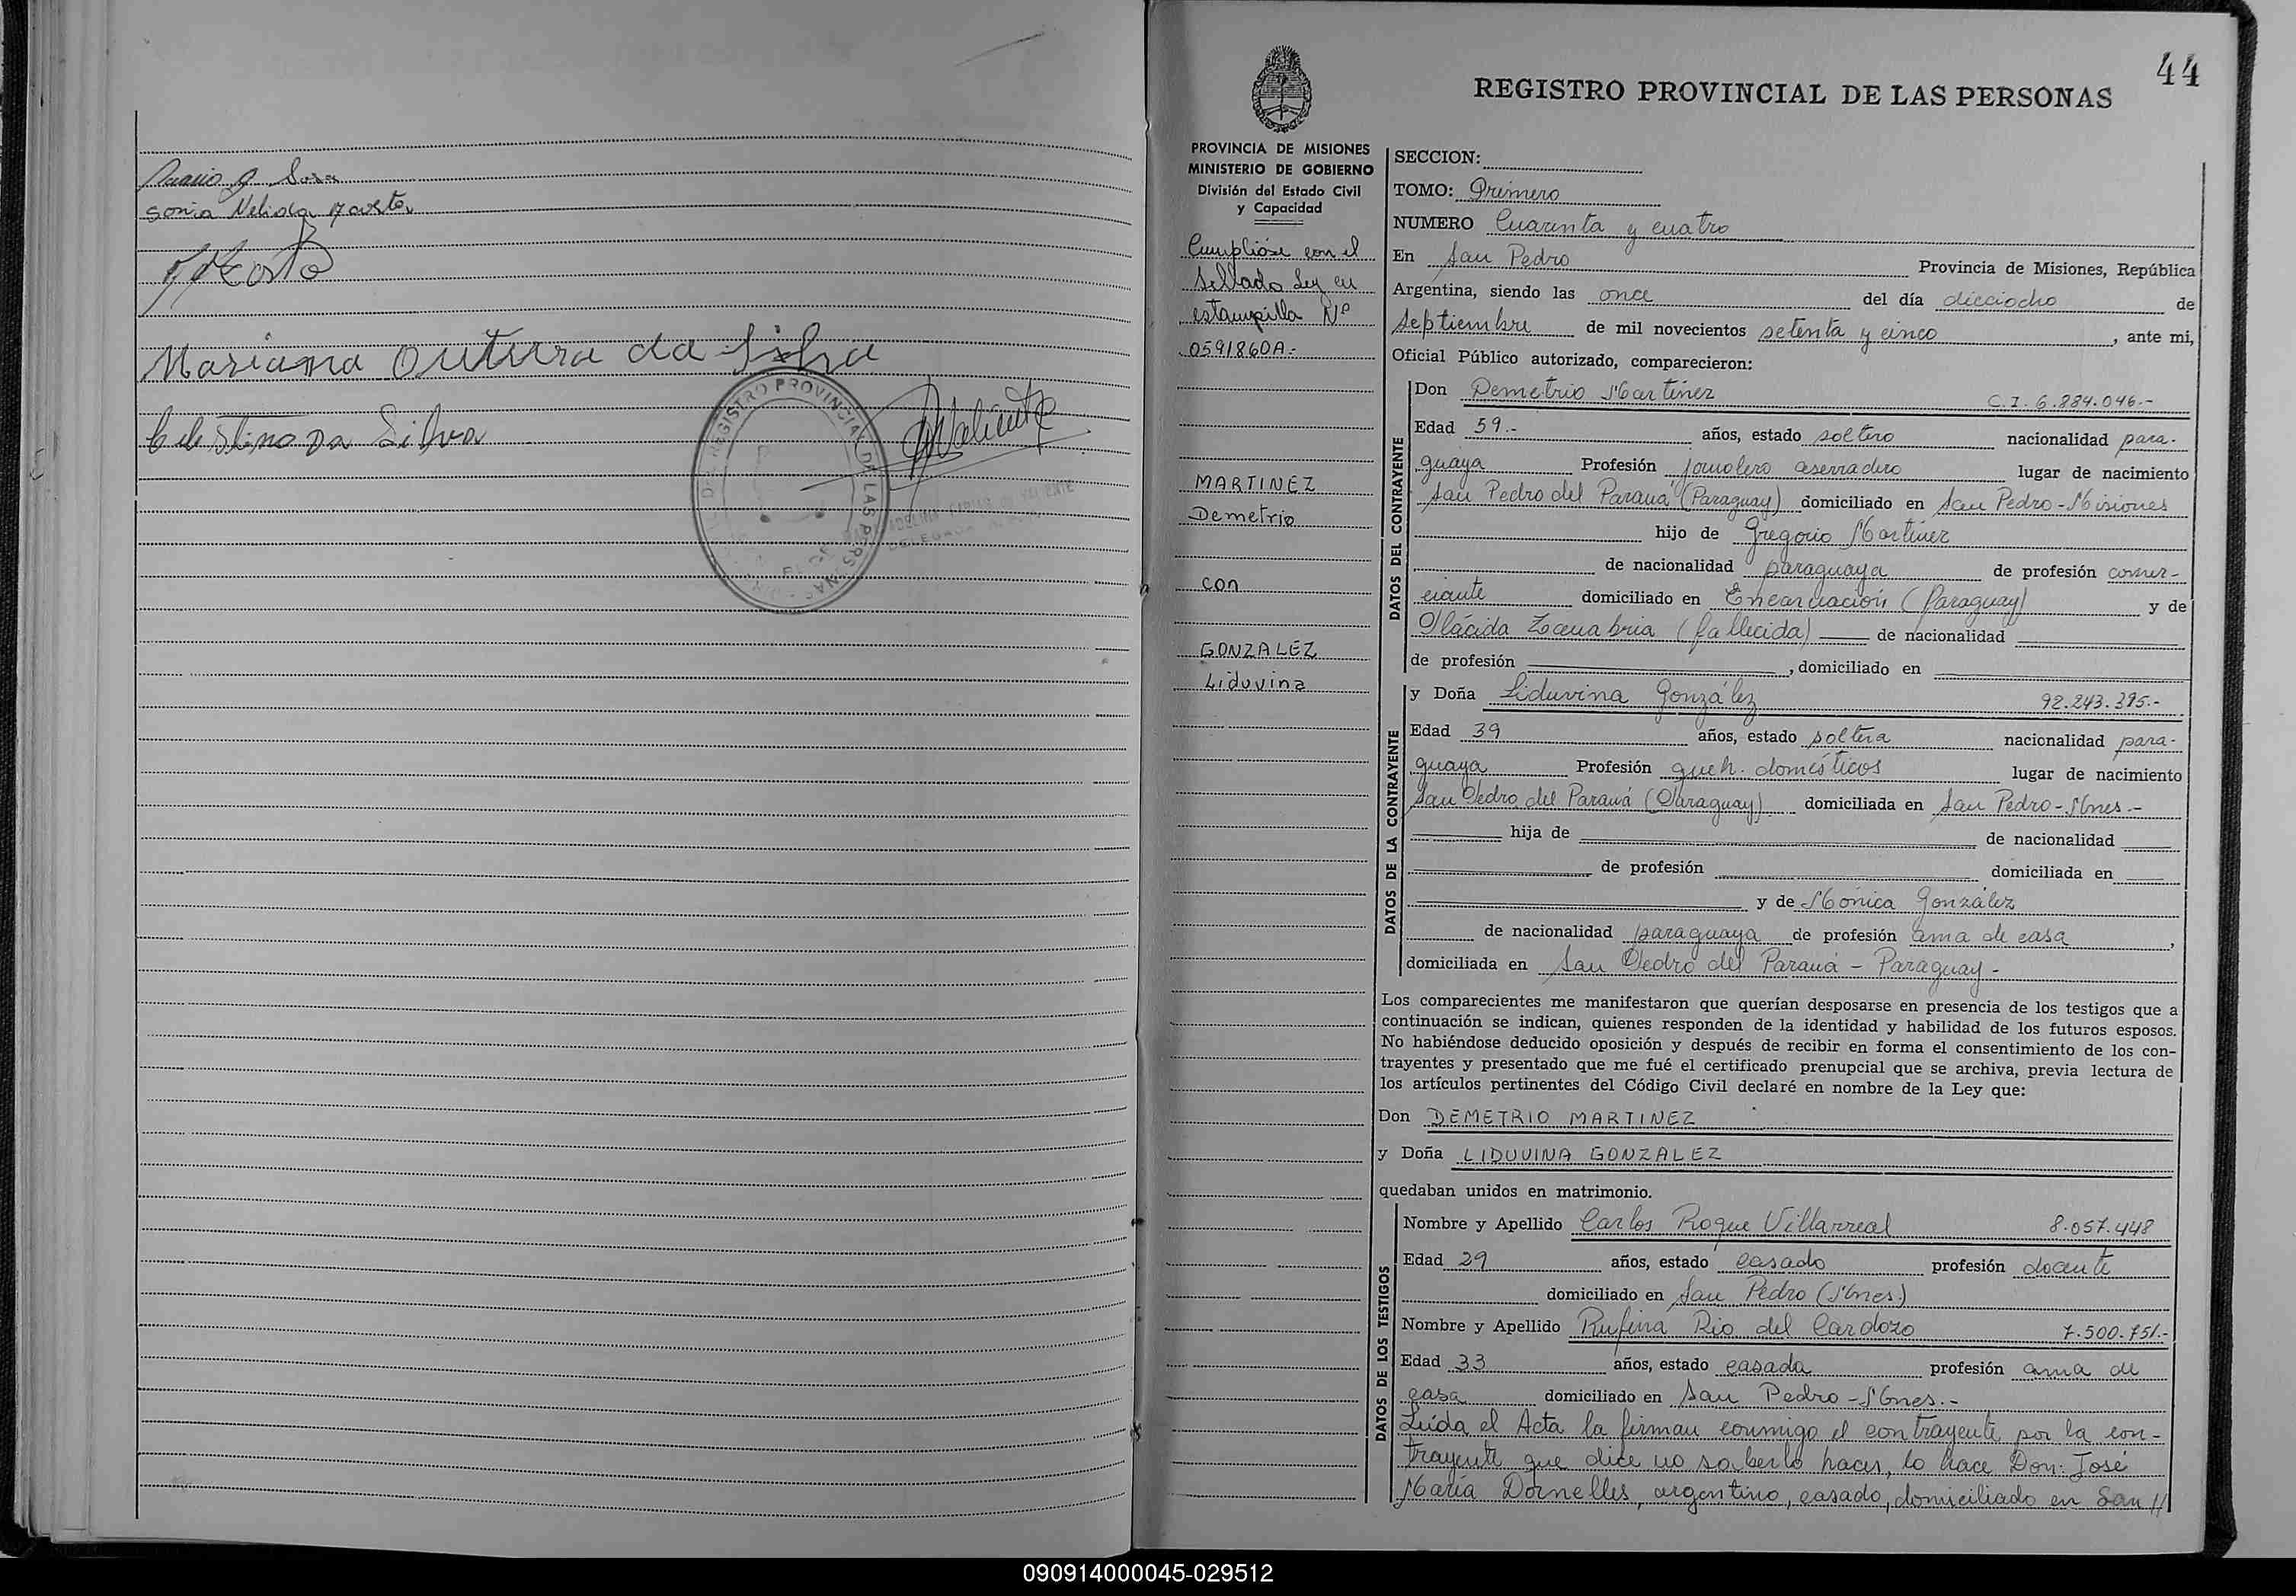 Mario A Sosa
Sonia Nelida Acosta
Acosta
Mariana Outurra da Silva
Celestino Da Silva
Valiente
REGISTRO PROVINCIAL DE LAS PERSONAS
44
REGISTRO PROVINCIAL DE LAS PERSONAS
PROVINCIA DE MISIONES
MINISTERIO DE GOBIERNO
División del Estado Civil
y Capacidad
Cumplióse con el
Sellado Ley en
estampilla Nº
0591860A.-
MARTINEZ
Demetrio
con
GONZALEZ
Liduvina
SECCION:
TOMO: Primero
NUMERO Cuarenta y cuatro
En San Pedro Provincia de Misiones, República
Argentina, siendo las once del día dieciocho de
Septiembre de mil novecientos setenta y cinco, ante mi,
Oficial Público autorizado, comparecieron:
DATOS DEL CONTRAYENTE
Don Demetrio Martínez C.I. 6.884.046.-
Edad 59.- años, estado soltero nacionalidad para-
guaya Profesión jornalero aserradero lugar de nacimiento
San Pedro del Paraná (Paraguay) domiciliado en San Pedro-Misiones
hijo de Gregorio Martínez
de nacionalidad paraguaya de profesión comer-
ciante domiciliado en Encarnación (Paraguay) y de
Plácida Zanabria (fallecida) de nacionalidad
de profesión , domiciliado en
DATOS DE LA CONTRAYENTE
y Doña Liduvina González 92.243.395.-
Edad 39 años, estado soltera nacionalidad para-
guaya Profesión queh. domésticos lugar de nacimiento
San Pedro del Paraná (Paraguay) domiciliada en San Pedro-Mnes.-
hija de de nacionalidad
de profesión domiciliada en
y de Mónica González
de nacionalidad paraguaya de profesión ama de casa,
domiciliada en San Pedro del Paraná - Paraguay -
Los comparecientes me manifestaron que querían desposarse en presencia de los testigos que a
continuación se indican, quienes responden de la identidad y habilidad de los futuros esposos.
No habiéndose deducido oposición y después de recibir en forma el consentimiento de los con-
trayentes y presentado que me fué el certificado prenupcial que se archiva, previa lectura de
los artículos pertinentes del Código Civil declaré en nombre de la Ley que:
Don DEMETRIO MARTINEZ
y Doña LIDUVINA GONZALEZ
quedaban unidos en matrimonio.
DATOS DE LOS TESTIGOS
Nombre y Apellido Carlos Roque Villarreal 8.057.448
Edad 29 años, estado casado profesión docente
domiciliado en San Pedro (Mnes.)
Nombre y Apellido Rufina Rio del Cardozo 7.500.751.-
Edad 33 años, estado casada profesión ama de
casa domiciliado en San Pedro-Mnes.-
Leída el Acta la firman conmigo el contrayente por la con-
trayente que dice no saberlo hacer, lo hace Don: José
María Dornelles, argentino, casado, domiciliado en San //
090914000045-029512